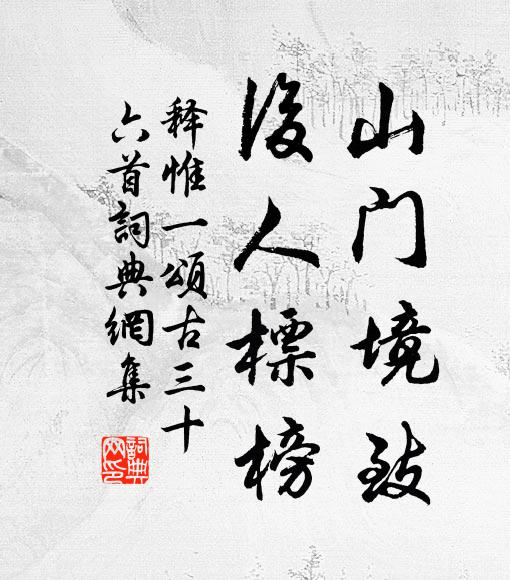 山门境致
后人標榜
释惟一頌古三十
六首詞典網集
詞典
网印